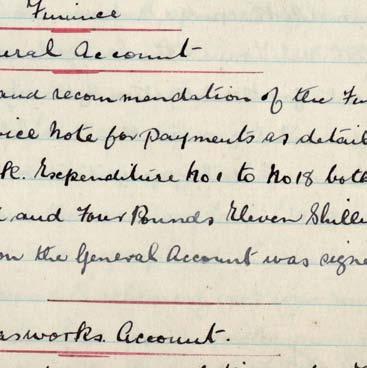 Finance
eral Account
and recommendation of the Fin
vice Note for payments as detail
Expenditure No 1 to No 18 both
and Four Pounds Eleven Shilli
on the General Account was signe
asworks. Account.